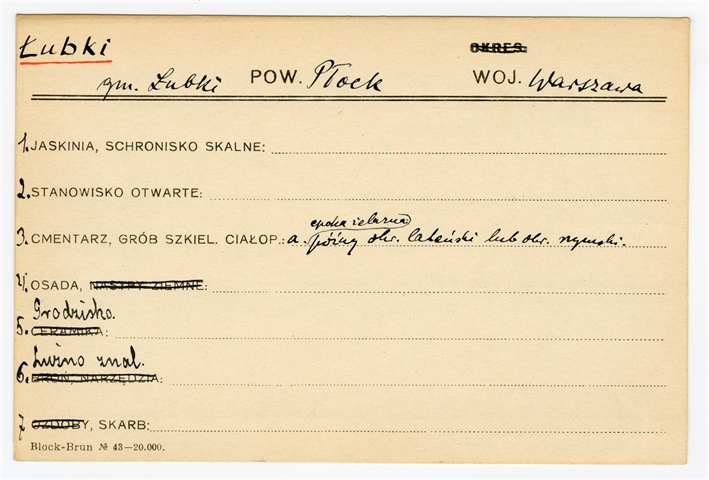 Łubki OKRES.
gm. Łubki POW. Płock WOJ. Warszawa
1. JASKINIA, SCHRONISKO SKALNE:
2. STANOWISKO OTWARTE:
epoka żelazna:
3. CMENTARZ, GRÓB SZKIEL. CIAŁOP.: a. późny okr. lateński lub okr. rzymski.
4. OSADA, NASYPY ZIEMNE:
Grodzisko.
5. CERAMIKA:
Luźno znal.
6. BROŃ, NARZĘDZIA:
7 OZDOBY, SKARB:
Block-Brun № 43—20.000.